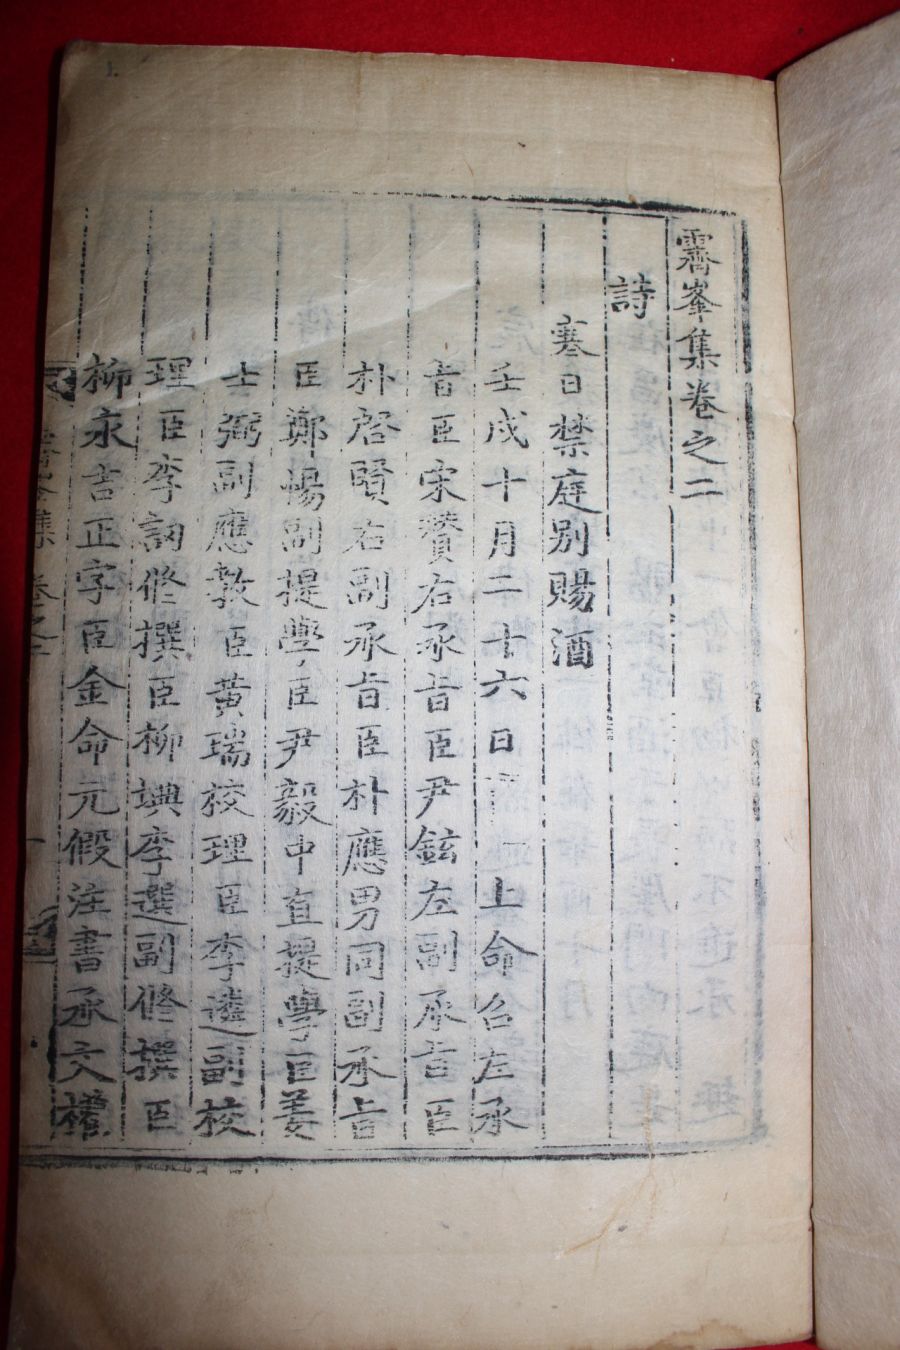 霽峯集卷之二
詩
寒日禁庭別賜酒
壬戌十月二十六日 上命召左承
旨臣宋賛右承旨臣尹鉉左副承旨臣
朴啓賢右副承旨臣朴應男同副承旨
臣鄭惕副提學臣尹毅中直提學臣姜
士弼副應敎臣黃瑞校理臣李遴副校
理臣李訒修撰臣柳㙉李選副修撰臣
柳永吉正字臣金命元假注書承文權
霽峯集 卷之二 一